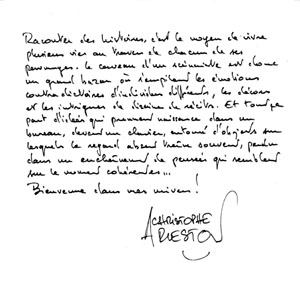 Raconter des histoires, c'est le moyen de vivre
plusieurs vies au travers de chacun de ses
personnages. Le cerveau d'un scénariste est donc
un grand bazar où s'empilent les émotions
contradictoires d'individus différents, les décors
et les intrigues de dizaines de récits. Et tout ça
part d'idées qui prennent naissance dans un
bureau, devant un clavier, entouré d'objets sur
lesquels le regard absent traîne souvent, perdu
dans un enchaînement de pensées qui semblent
sur le moment cohérentes...
Bienvenue dans mes univers !
CHRISTOPHE
ARLESTON